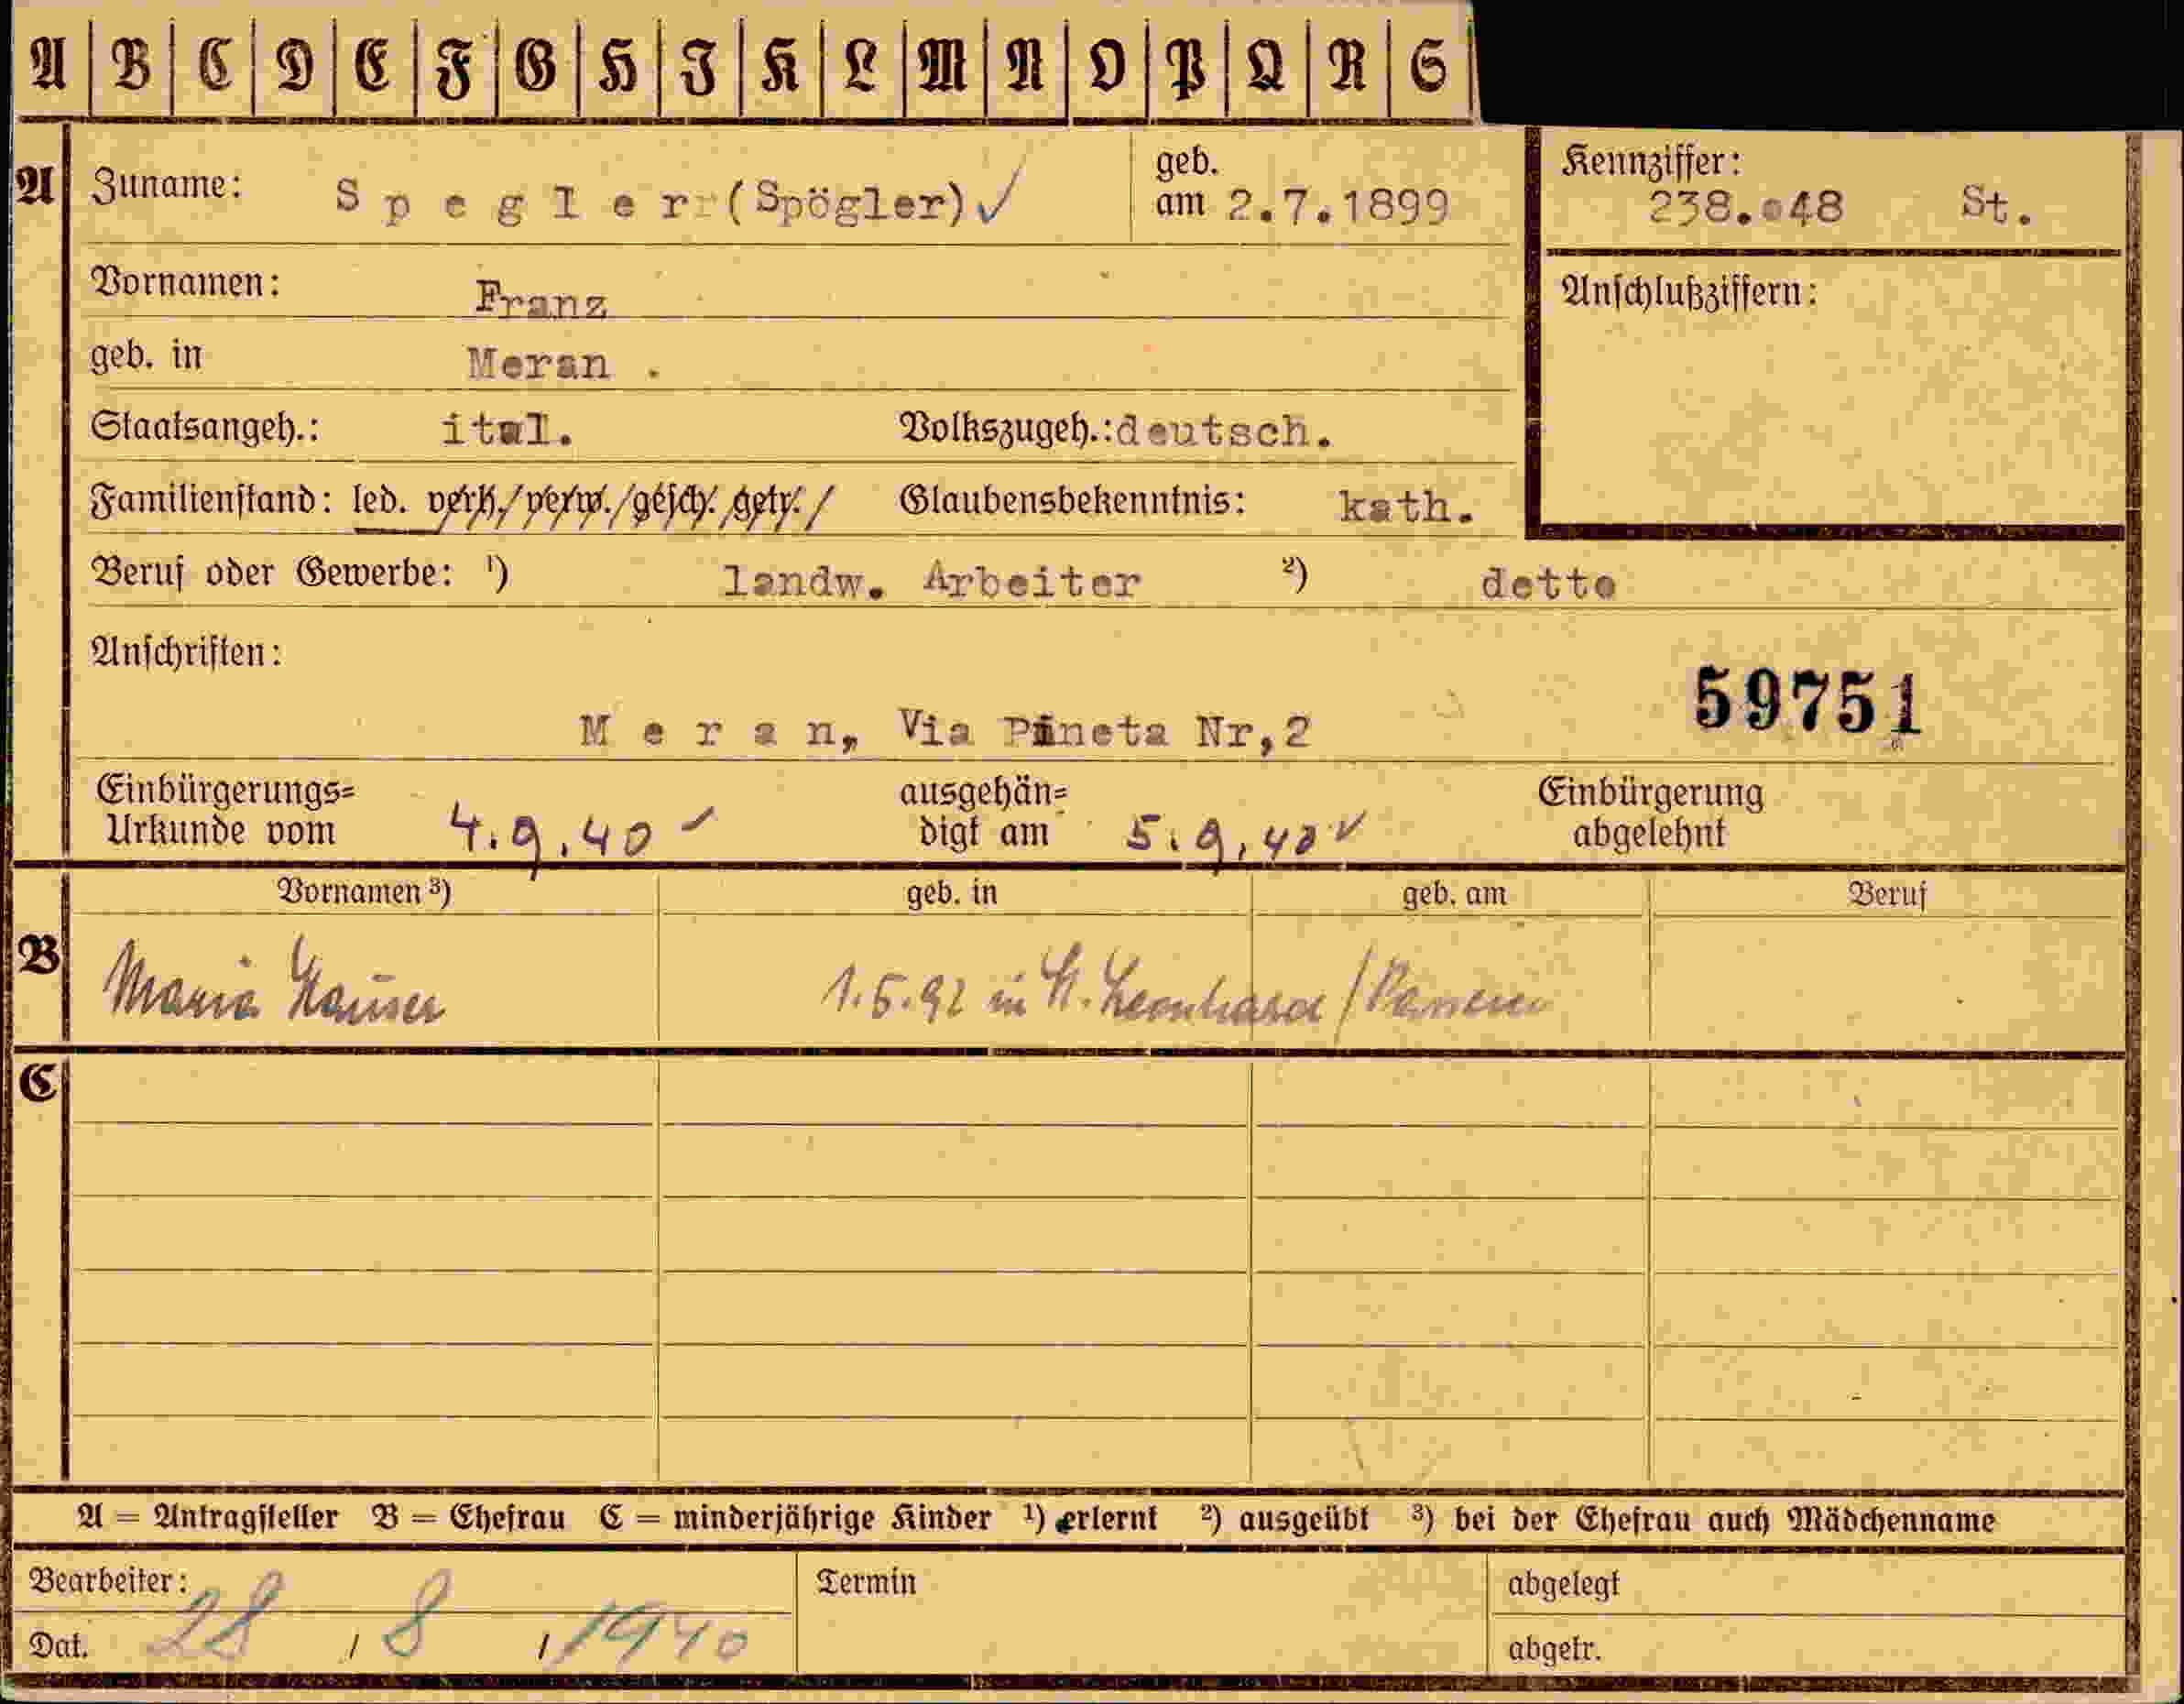 A B C D E F G H I K L M N O P Q R S
A Zuname: Spegler (Spögler) ✓ geb. am 2.7.1899 Kennziffer: 238.048 St.
Vornamen: Franz Anschlußziffern:
geb. in Meran .
Staatsangeh.: ital. Volkszugeh.: deutsch.
Familienstand: led. verh./verw./gesch./getr./ Glaubensbekenntnis: kath.
Beruf oder Gewerbe: 1) landw. Arbeiter 2) dette
Anschriften:
59751
Meran, Via Pineta Nr,2
Einbürgerungs= Urkunde vom 4.9.40 ausgehän= digt am 5.9.40 ✓ Einbürgerung abgelehnt
Vornamen 3) geb. in geb. am Beruf
B Maria Hauser 1.5.92 in St. Leonhard / Passeier
C
A = Antragsteller B = Ehefrau C = minderjährige Kinder 1) erlernt 2) ausgeübt 3) bei der Ehefrau auch Mädchenname
Bearbeiter: Termin abgelegt
Dat. 28 / 8 / 1940 abgetr.